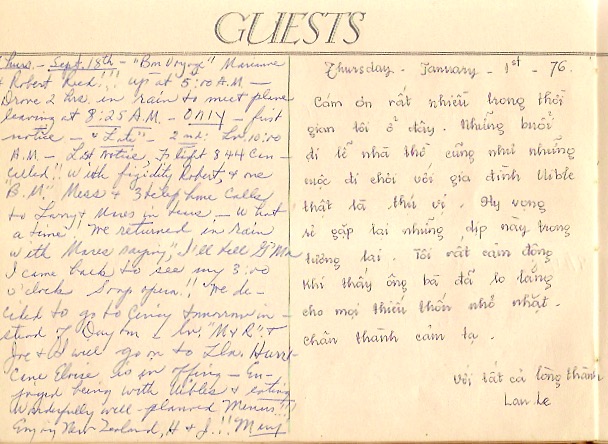 GUESTS
Thurs. - Sept. 18th - "Bon Voyage" Marianne
& Robert Reed!!! up at 5:00 A.M -
Drove 2 hrs. in rain to meet plane
leaving at 8:25 A.M - ONLY - first
notice - "Late" - 2nd: Lv. 10:00
A.M - Last notice, Flight 844 Can-
celled!! With frigidity Robert, & one
"B.M" Mess & 3 telephone calls
to Larry & Mares in tears - What
a time!! We returned in rain
with Mares saying, "I'll tell G'Ma
I came back to see my 3:00
o'clock Soap opera!! We de-
cided to go to tomorrow in-
stead of Dayton - Lv. "M & R" &
Joe & I will go on to Fla. Hurri-
cane Eloise is in offing - En-
joyed being with Uibles & eating
Wonderfully well-planned Menus!!!
Enjoy New Zealand, H & J!!! Mary
Thursday - January - 1st - 76.
Cám ơn rất nhiều trong thời
gian tôi ở đây. Những buổi
đi lễ nhà thờ cũng như những
cuộc đi chơi với gia đình Uible
thật là thú vị. Hy vọng
sẽ gặp lại những dịp này trong
tương lai. Tôi rất cảm động
khi thấy ông bà đã lo lắng
cho mọi thiếu thốn nhỏ nhặt.
chân thành cảm tạ.
với tất cả lòng thành
Lan Le